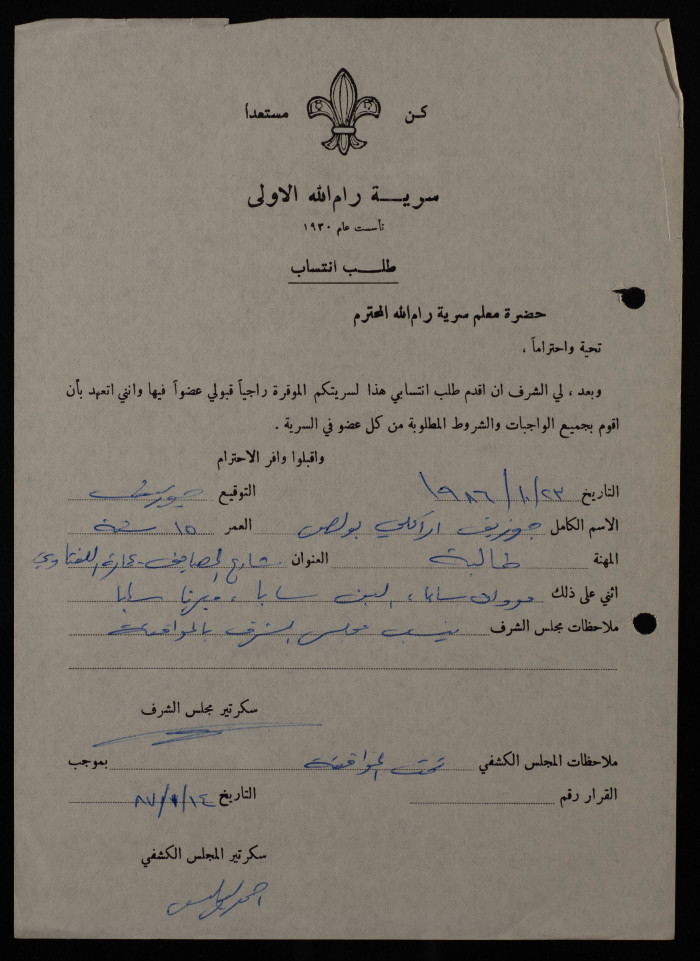 كن مستعداً
سرية رام الله الاولى
تأسست عام ١٩٣٠
طلب انتساب
حضرة معلم سرية رام الله المحترم
تحية واحتراماً ،
وبعد ، لي الشرف ان اقدم طلب انتسابي هذا لسريتكم الموقرة راجياً قبولي عضواً فيها وانني اتعهد بأن
اقوم بجميع الواجبات والشروط المطلوبة من كل عضو في السرية .
واقبلوا وافر الاحترام
التاريخ ٢٣/١٠/١٩٨٦ التوقيع
الاسم الكامل جوزيف بولص العمر ١٥ سنة
المهنة طالبة العنوان شارع المصايف - عمارة
اثني على ذلك مروان سابا ، سابا ، ميرنا سابا
ملاحظات مجلس الشرف ينسب مجلس الشرف بالموافقة
سكرتير مجلس الشرف
ملاحظات المجلس الكشفي تمت الموافقة بموجب
القرار رقم التاريخ ١٤/١/٨٧
سكرتير المجلس الكشفي